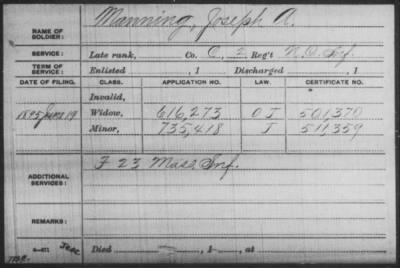 Manning, Joseph A.
NAME OF SOLDIER:
SERVICE: Late rank, Co. C, 2 Reg't N. O. Inf.
TERM OF SERVICE: Enlisted , 1 Discharged , 1
DATE OF FILING. CLASS. APPLICATION NO. LAW. CERTIFICATE NO.
Invalid,
1895 June 19 Widow, 616,273 O J 501,370
Minor, 735,418 J 511,359
F 23 Mass Inf.
ADDITIONAL SERVICES:
REMARKS:
Died , 1 , at